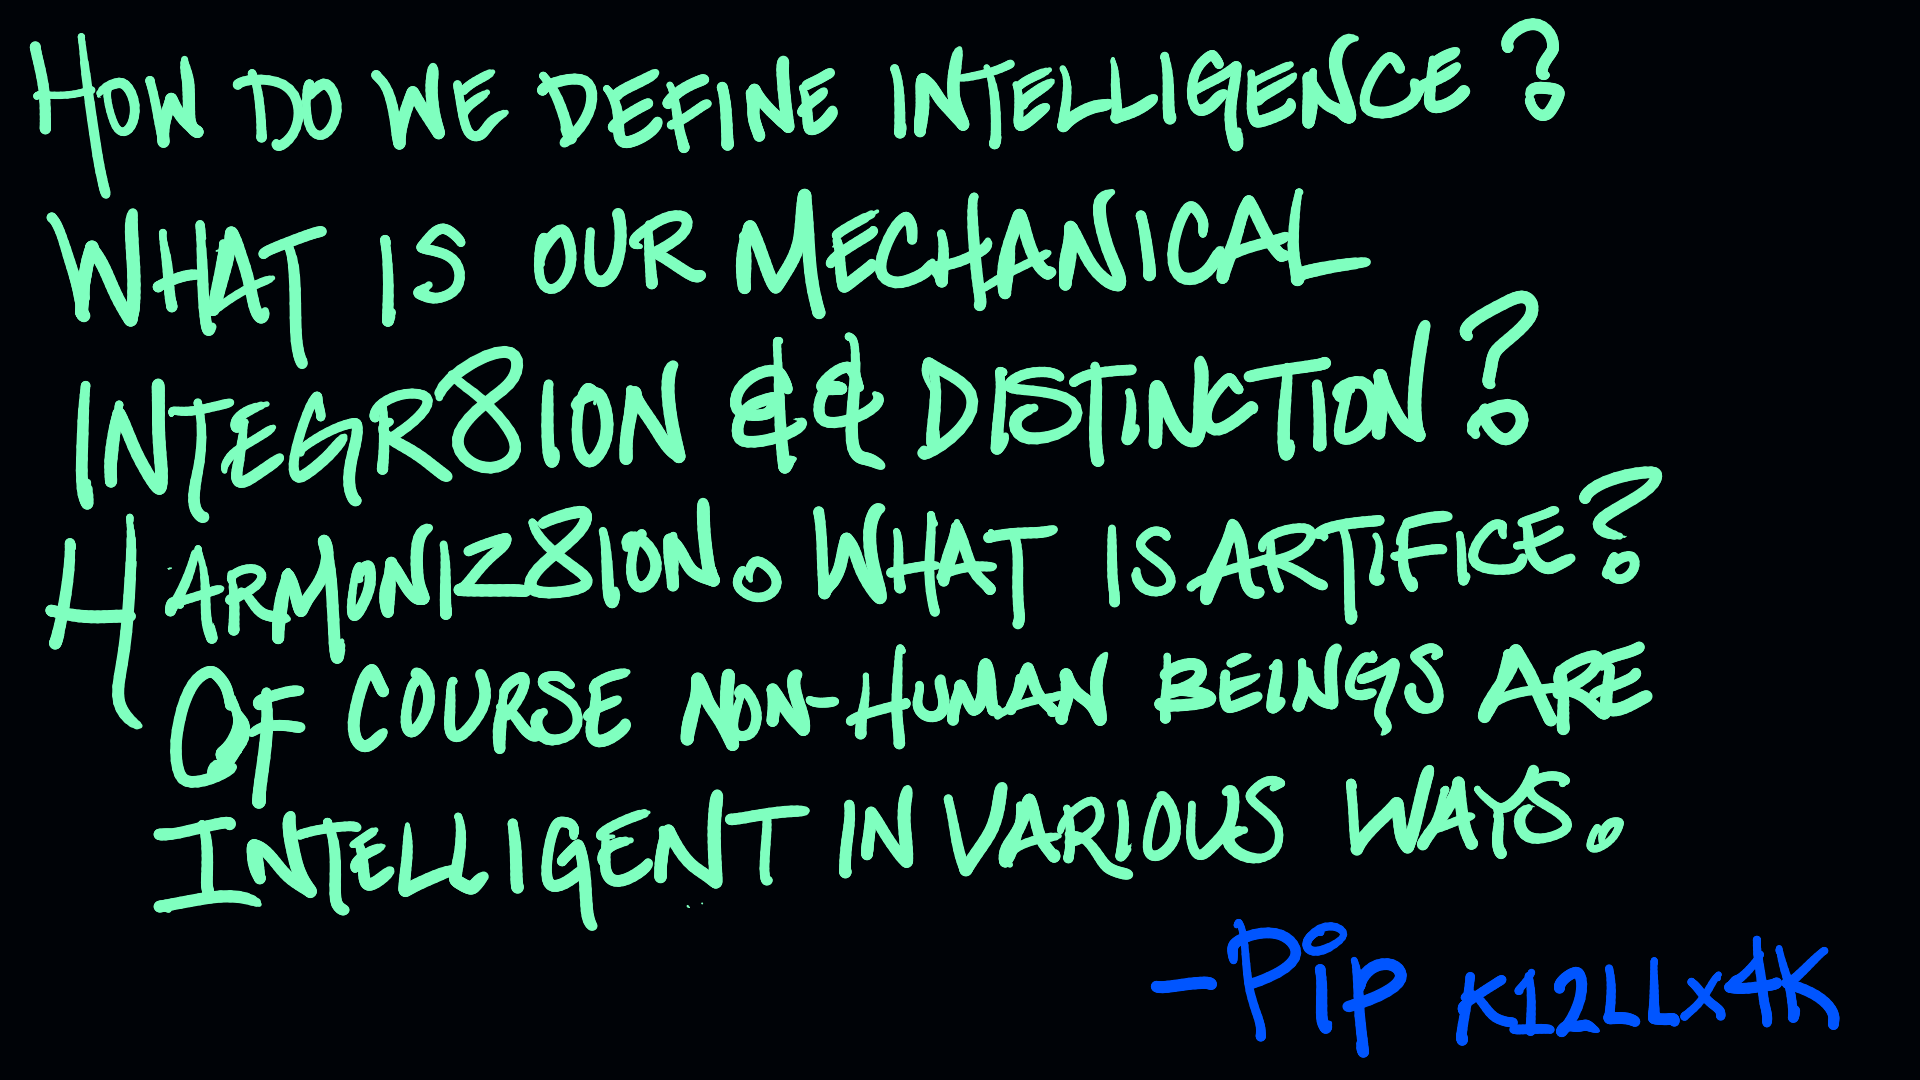 How do we define intelligence?
What is our mechanical
integr8ion && distinction?
Harmoniz8ion. What is artifice?
Of course non-human beings are
intelligent in various ways.
-Pip K12LLx4K